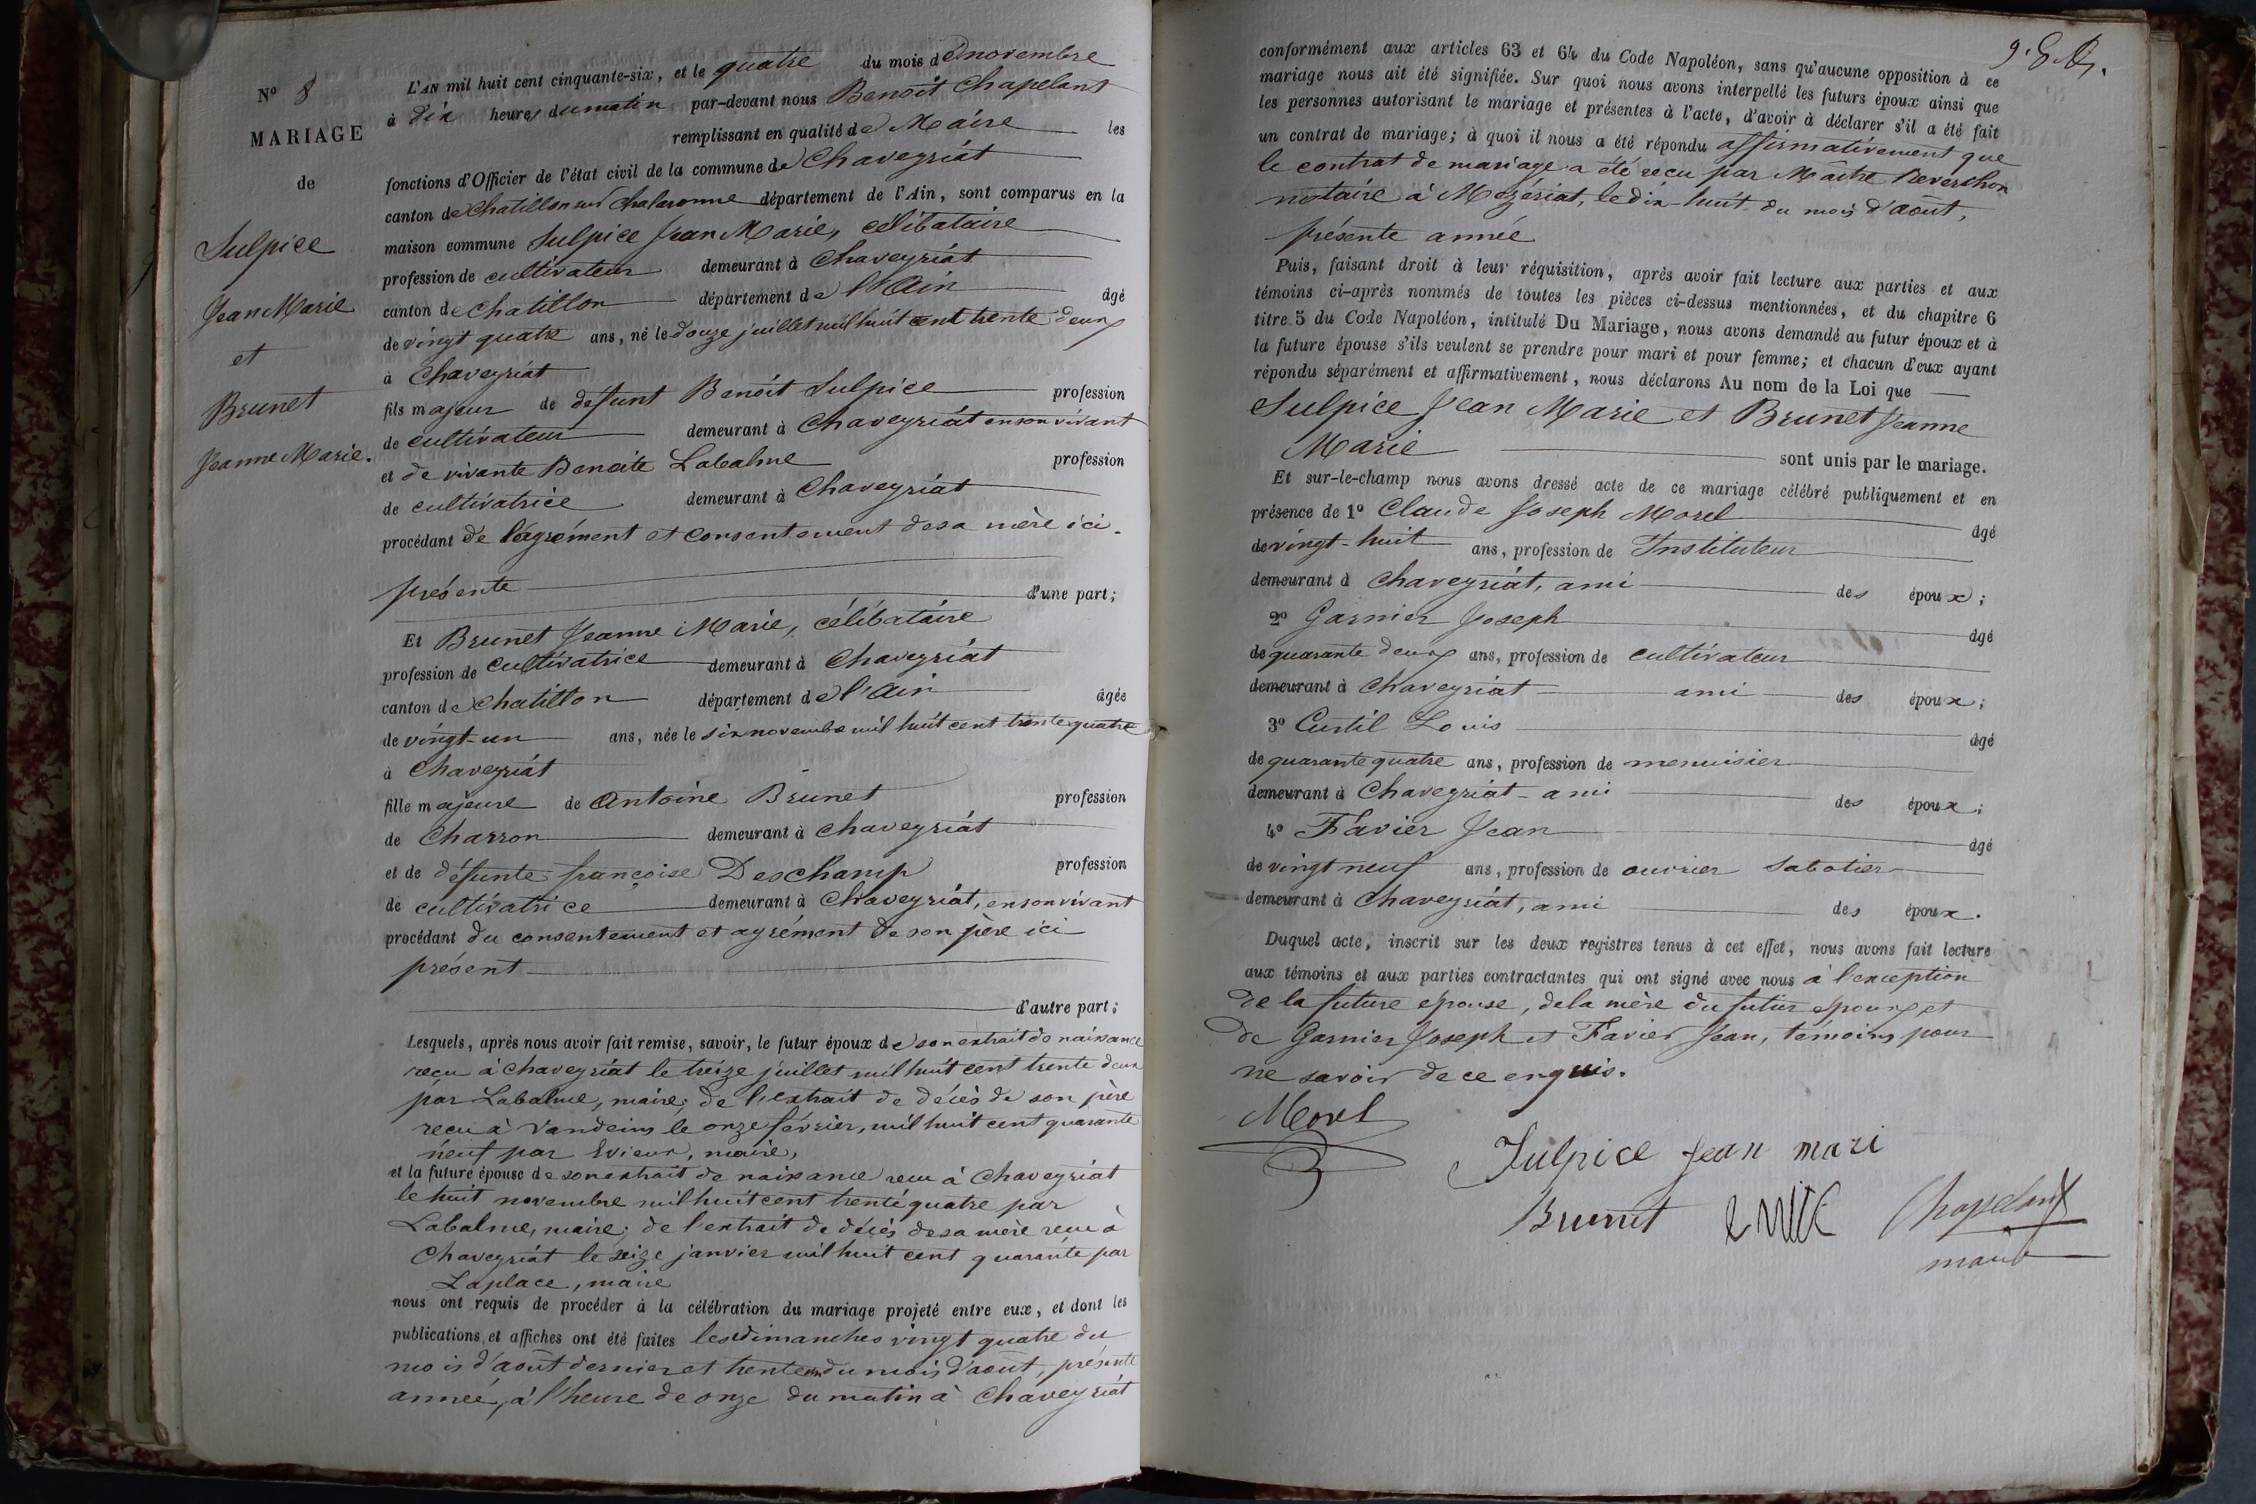 N° 8
MARIAGE
de
Sulpice
Jean Marie
et
Brunet
Jeanne Marie.
L'AN mil huit cent cinquante-six, et le quatre du mois de novembre
à dix heures du matin par-devant nous Benoit Chapelant
remplissant en qualité de Maire les
fonctions d'Officier de l'état civil de la commune de Chaveyriat
canton de Chatillon sur Chalaronne département de l'Ain, sont comparus en la
maison commune Sulpice Jean Marie, célibataire
profession de cultivateur demeurant à Chaveyriat
canton de Chatillon département de l'Ain âgé
de vingt quatre ans, né le douze juillet mil huit cent trente deux
à Chaveyriat
fils majeur de défunt Benoit Sulpice profession
de cultivateur demeurant à Chaveyriat en son vivant
et de vivante Benoite Labalme profession
de cultivatrice demeurant à Chaveyriat
procédant de l'agrément et consentement de sa mère ici-
présente d'une part;
Et Brunet Jeanne Marie, célibataire
profession de cultivatrice demeurant à Chaveyriat
canton de Chatillon département de l'Ain âgée
de vingt-un ans, née le six novembre mil huit cent trente quatre
à Chaveyriat
fille majeure de Antoine Brunet profession
de Charron demeurant à Chaveyriat
et de défunte françoise Deschamp profession
de cultivatrice demeurant à Chaveyriat, en son vivant
procédant du consentement et agrément de son père ici
présent
d'autre part;
Lesquels, après nous avoir fait remise, savoir, le futur époux de son extrait de naissance
reçu à Chaveyriat le treize juillet mil huit cent trente deux
par Labalme, maire; de l'extrait de décès de son père
reçu à Vandeins le onze février, mil huit cent quarante
neuf par Evieux, maire,
et la future épouse de son extrait de naissance reçu à Chaveyriat
le huit novembre mil huit cent trente quatre par
Labalme, maire; de l'extrait de décès de sa mère reçu à
Chaveyriat le seize janvier mil huit cent quarante par
Laplace, maire
nous ont requis de procéder à la célébration du mariage projeté entre eux, et dont les
publications et affiches ont été faites les dimanches vingt quatre du
mois d'août dernier et trente un du mois d'août, présente
année, à l'heure de onze du matin à Chaveyriat
conformément aux articles 63 et 64 du Code Napoléon, sans qu'aucune opposition à ce
mariage nous ait été signifiée. Sur quoi nous avons interpellé les futurs époux ainsi que
les personnes autorisant le mariage et présentes à l'acte, d'avoir à déclarer s'il a été fait
un contrat de mariage; à quoi il nous a été répondu affirmativement que
le contrat de mariage a été reçu par Maître Reverchon
notaire à Mézériat, le dix-huit du mois d'août,
présente année
Puis, faisant droit à leur réquisition, après avoir fait lecture aux parties et aux
témoins ci-après nommés de toutes les pièces ci-dessus mentionnées, et du chapitre 6
titre 5 du Code Napoléon, intitulé Du Mariage, nous avons demandé au futur époux et à
la future épouse s'ils veulent se prendre pour mari et pour femme; et chacun d'eux ayant
répondu séparément et affirmativement, nous déclarons Au nom de la Loi que
Sulpice Jean Marie et Brunet Jeanne
Marie sont unis par le mariage.
Et sur-le-champ nous avons dressé acte de ce mariage célébré publiquement et en
présence de 1° Claude Joseph Morel âgé
de vingt-huit ans, profession de Instituteur
demeurant à Chaveyriat, ami des époux;
2° Garnier Joseph âgé
de quarante deux ans, profession de cultivateur
demeurant à Chaveyriat ami des époux;
3° Curtil Louis âgé
de quarante quatre ans, profession de menuisier
demeurant à Chaveyriat - ami des époux;
4° Favier Jean âgé
de vingt neuf ans, profession de ouvrier Sabotier
demeurant à Chaveyriat, ami des époux.
Duquel acte, inscrit sur les deux registres tenus à cet effet, nous avons fait lecture
aux témoins et aux parties contractantes qui ont signé avec nous à l'exception
de la future épouse, de la mère du futur époux et
de Garnier Joseph et Favier Jean, témoins pour
ne savoir de ce enquis.
Morel
Sulpice Jean mari
Brunet Chapelant
maire